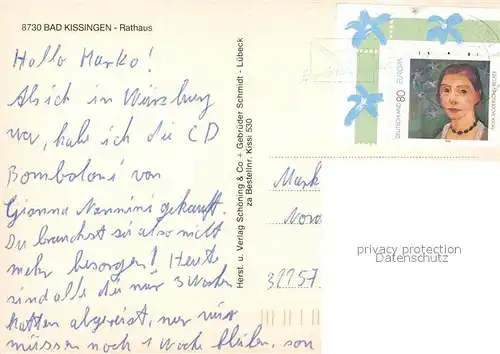 8730 BAD KISSINGEN - Rathaus
Hallo Marko!
Als ich in Würzburg
war, habe ich die CD
Bomboloni von
Gianna Nannini gekauft.
Du brauchst sie also nicht
mehr besorgen! Heute
sind alle die nur 3 Wochen
hatten abgereist, nur wir
müssen noch 1 Woche bleiben, son
Herst. u. Verlag Schöning & Co + Gebrüder Schmidt - Lübeck
za Bestellnr. Kissi 530
DEUTSCHLAND 80 EUROPA
PAULA MODERSOHN-BECKER
Mark
Nord
31157
privacy protection
Datenschutz